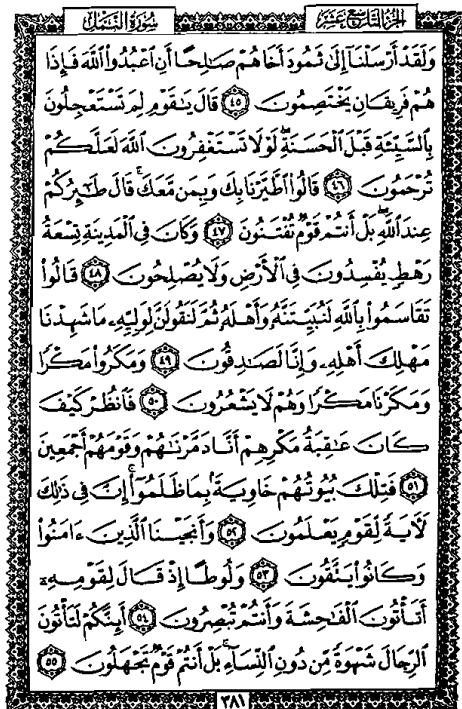 الجزء التاسع عشر
سورة النمل
وَلَقَدْ أَرْسَلْنَا إِلَىٰ ثَمُودَ أَخَاهُمْ صَٰلِحًا أَنِ ٱعْبُدُوا۟ ٱللَّهَ فَإِذَا
هُمْ فَرِيقَانِ يَخْتَصِمُونَ ٤٥ قَالَ يَٰقَوْمِ لِمَ تَسْتَعْجِلُونَ
بِٱلسَّيِّئَةِ قَبْلَ ٱلْحَسَنَةِ ۖ لَوْلَا تَسْتَغْفِرُونَ ٱللَّهَ لَعَلَّكُمْ
تُرْحَمُونَ ٤٦ قَالُوا۟ ٱطَّيَّرْنَا بِكَ وَبِمَن مَّعَكَ ۚ قَالَ طَٰٓئِرُكُمْ
عِندَ ٱللَّهِ ۖ بَلْ أَنتُمْ قَوْمٌ تُفْتَنُونَ ٤٧ وَكَانَ فِى ٱلْمَدِينَةِ تِسْعَةُ
رَهْطٍ يُفْسِدُونَ فِى ٱلْأَرْضِ وَلَا يُصْلِحُونَ ٤٨ قَالُوا۟
تَقَاسَمُوا۟ بِٱللَّهِ لَنُبَيِّتَنَّهُۥ وَأَهْلَهُۥ ثُمَّ لَنَقُولَنَّ لِوَلِيِّهِۦ مَا شَهِدْنَا
مَهْلِكَ أَهْلِهِۦ وَإِنَّا لَصَٰدِقُونَ ٤٩ وَمَكَرُوا۟ مَكْرًا
وَمَكَرْنَا مَكْرًا وَهُمْ لَا يَشْعُرُونَ ٥٠ فَٱنظُرْ كَيْفَ
كَانَ عَٰقِبَةُ مَكْرِهِمْ أَنَّا دَمَّرْنَٰهُمْ وَقَوْمَهُمْ أَجْمَعِينَ
٥١ فَتِلْكَ بُيُوتُهُمْ خَاوِيَةًۢ بِمَا ظَلَمُوٓا۟ ۗ إِنَّ فِى ذَٰلِكَ
لَءَايَةً لِّقَوْمٍ يَعْلَمُونَ ٥٢ وَأَنجَيْنَا ٱلَّذِينَ ءَامَنُوا۟
وَكَانُوا۟ يَتَّقُونَ ٥٣ وَلُوطًا إِذْ قَالَ لِقَوْمِهِۦٓ
أَتَأْتُونَ ٱلْفَٰحِشَةَ وَأَنتُمْ تُبْصِرُونَ ٥٤ أَئِنَّكُمْ لَتَأْتُونَ
ٱلرِّجَالَ شَهْوَةً مِّن دُونِ ٱلنِّسَآءِ ۚ بَلْ أَنتُمْ قَوْمٌ تَجْهَلُونَ ٥٥
٣٨١